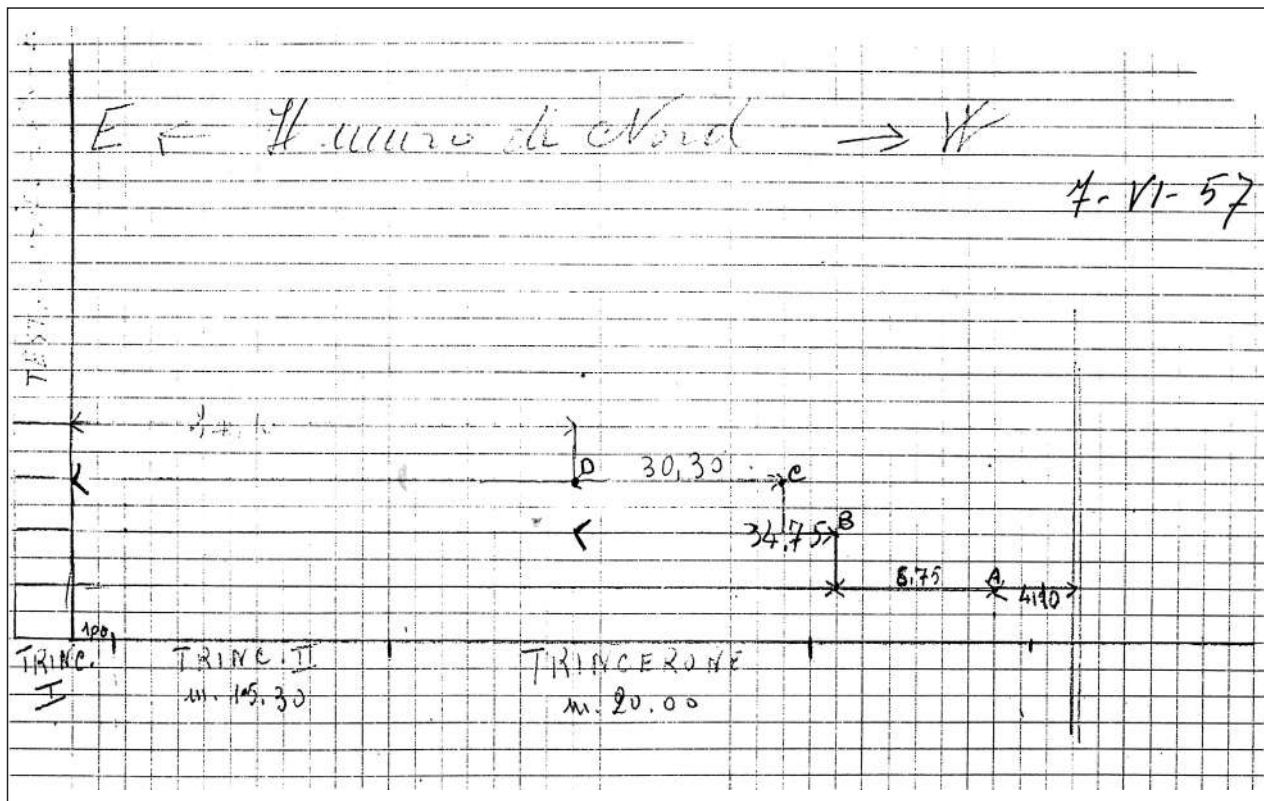 E ← Il muro di Nord → W
7-VI-57
TEST.
D 30,30 C
34,75 B
8,75 A
4,10
1,00
TRINC. I
TRINC. II
m. 15.30
TRINCERONE
m. 20.00